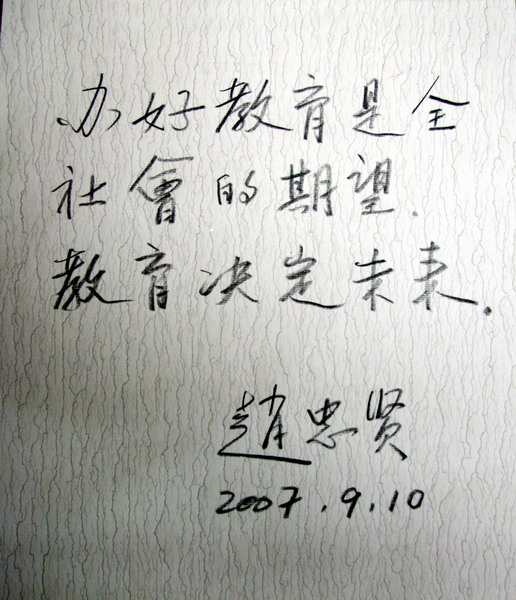 办好教育是全
社會的期望.
教育决定未来.
趙忠贤
2007.9.10